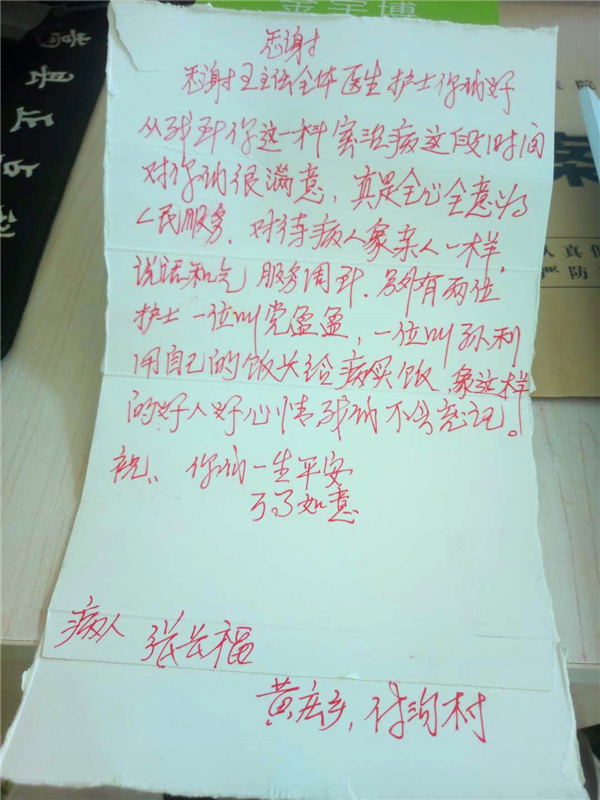 金宝博
感谢
感谢王主任全体医生护士你们好
从我到你这一科室治病这段时间
对你们很满意,真是全心全意为
人民服务.对待病人象亲人一样,
说话和气 服务周到.另外有两位
护士 一位叫党盈盈,一位叫孙利
用自己的饭卡给病买饭,象这样
的好人好心情我们不会忘记。
祝:你们一生平安
万事如意
病人 张长福
黄庄乡,付沟村
院
案
认真
严防